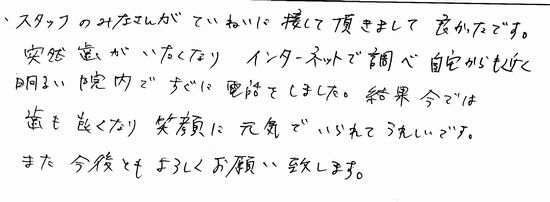 ・スタッフのみなさんがていねいに接して頂きまして良かったです。
突然歯がいたくなりインターネットで調べ自宅からも近く
明るい院内ですぐに電話をしました。結果今では
歯も良くなり笑顔に元気でいられてうれしいです。
また今後ともよろしくお願い致します。